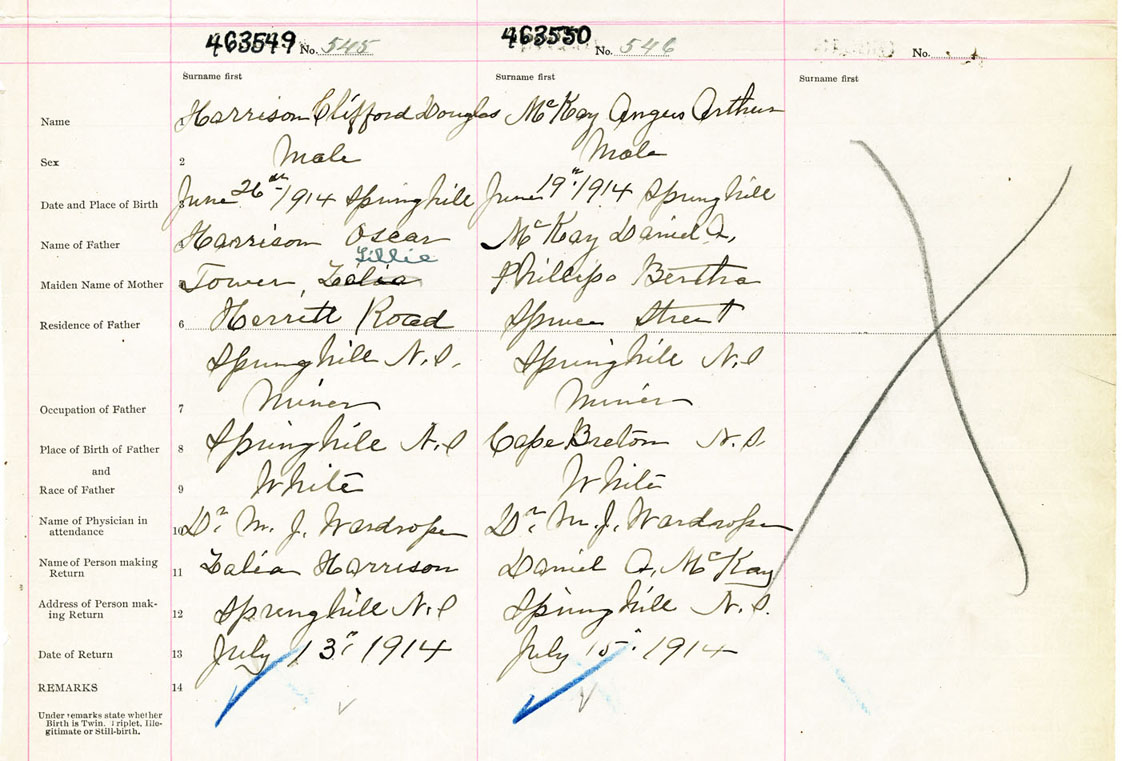 463549 No. 545 463550 No. 546 No.
Surname first Surname first Surname first
Name 1 Harrison Clifford Douglas McKay Angus Arthur
Sex 2 Male Male
Date and Place of Birth June 26th 1914 Springhill June 19" 1914 Springhill
Name of Father Harrison Oscar McKay Daniel A.
Lillie
Maiden Name of Mother 5 Tower, Zalia Phillips Bertha
Residence of Father 6 Herritt Road Spruce Street
Springhill N.S. Springhill N.S
Occupation of Father 7 Miner Miner
Place of Birth of Father 8 Springhill N.S Cape Breton N.S.
and
Race of Father 9 White White
Name of Physician in
attendance 10 Dr. M. J. Wardrope Dr. M. J. Wardrope
Name of Person making
Return 11 Zalia Harrison Daniel A. McKay
Address of Person mak-
ing Return 12 Springhill N.S Springhill N.S.
Date of Return 13 July 13" 1914 July 15" 1914
REMARKS 14
Under remarks state whether
Birth is Twin, Triplet, Ille-
gitimate or Still-birth.